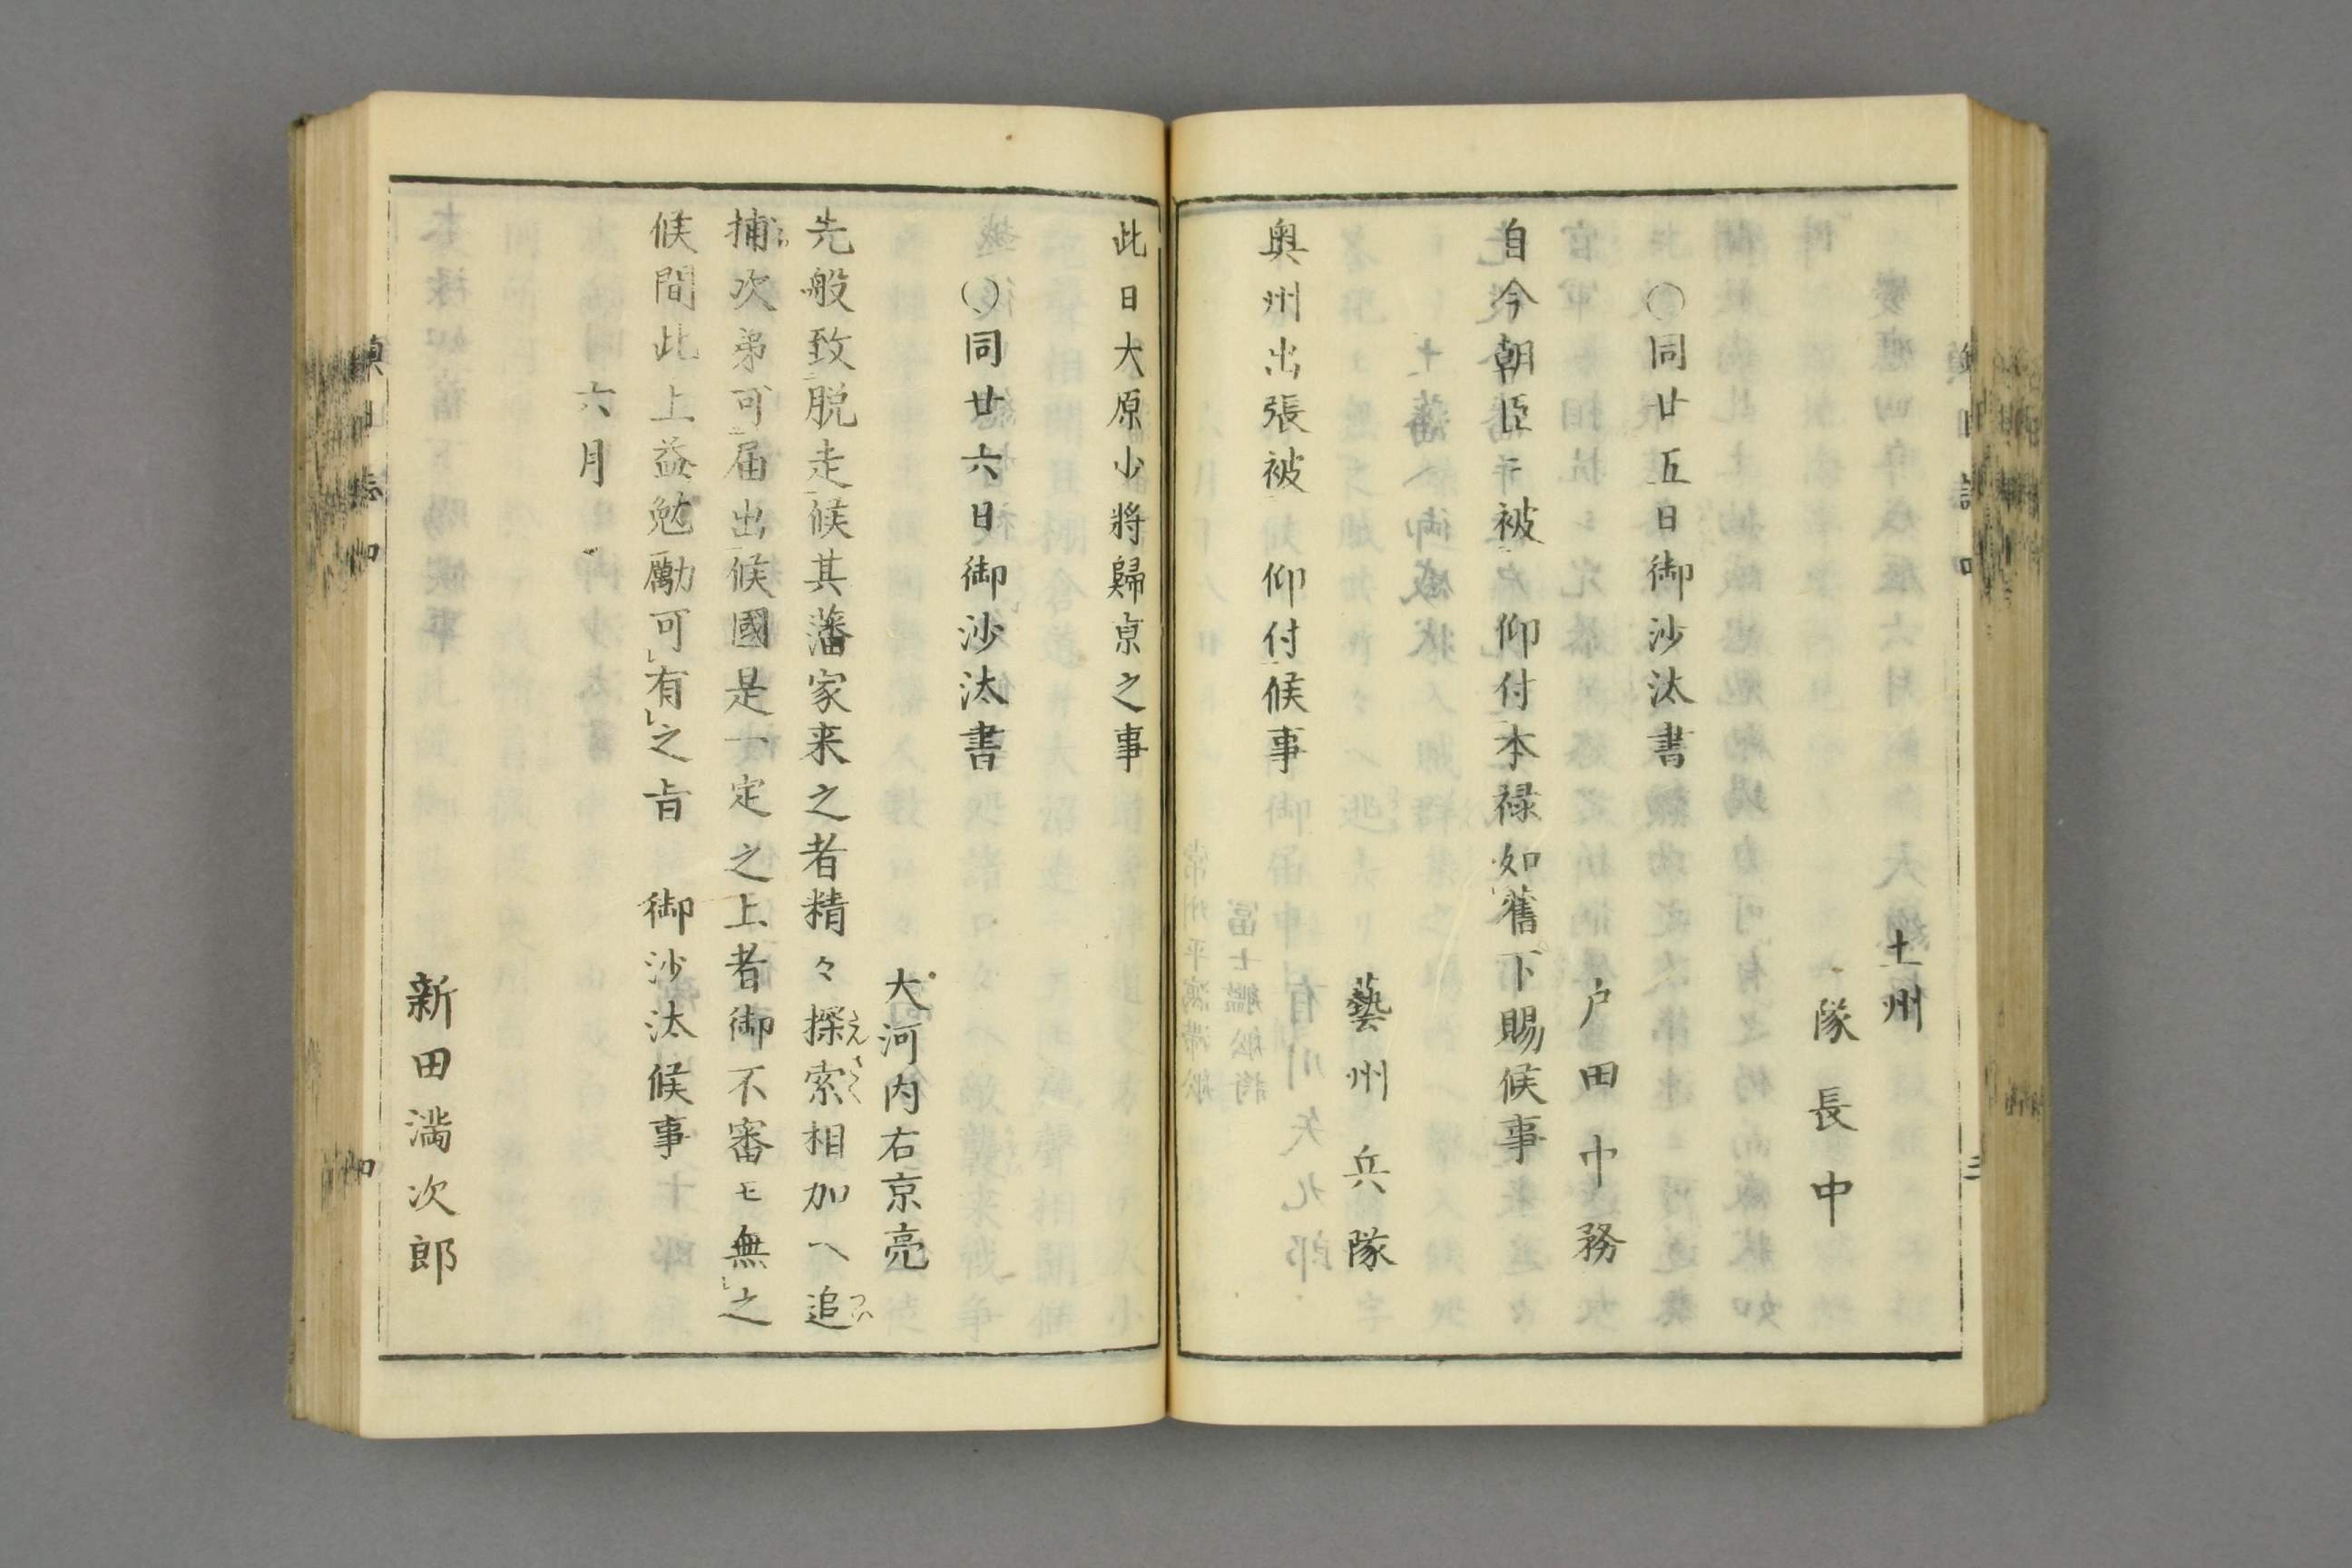 土州
隊長中
○同廿五日御沙汰書
戸田中務
自今朝臣ニ被　仰付本禄如舊下賜候事
藝州兵隊
奥州出張被　仰付候事
此日大原少將歸京之事
○同廿六日御沙汰書
大河内右京亮
先般致脱走候其藩家来之者精々探索相加ヘ追
捕次第可届出候國是一定之上者御不審モ無之
候間此上益勉勵可有之旨　御沙汰候事
六月
新田満次郎